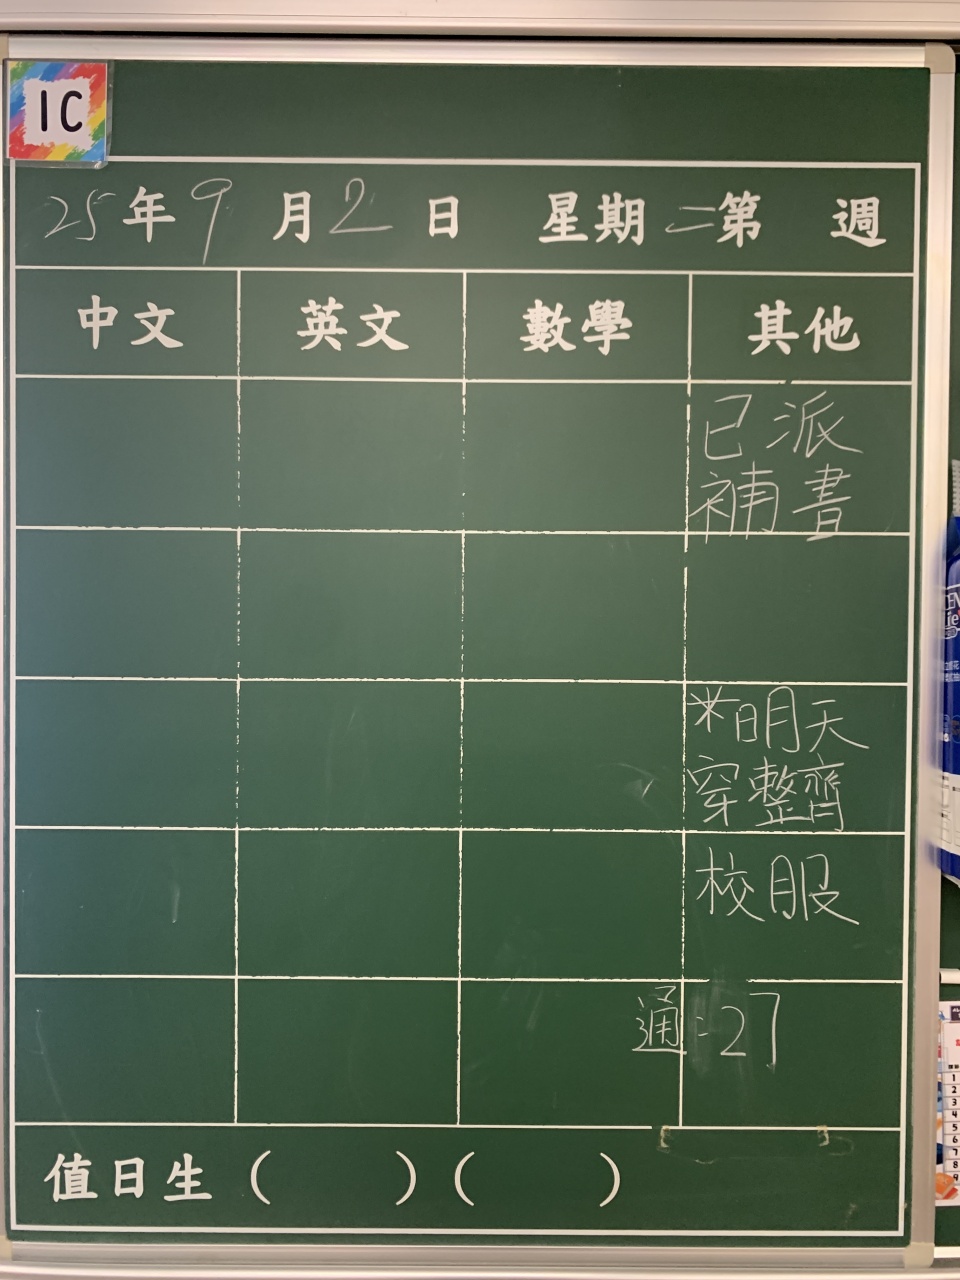 1C
25年9月2日 星期二第 週
中文 英文 數學 其他
已派
補書
*明天
穿整齊
校服
通:27
值日生( )( )